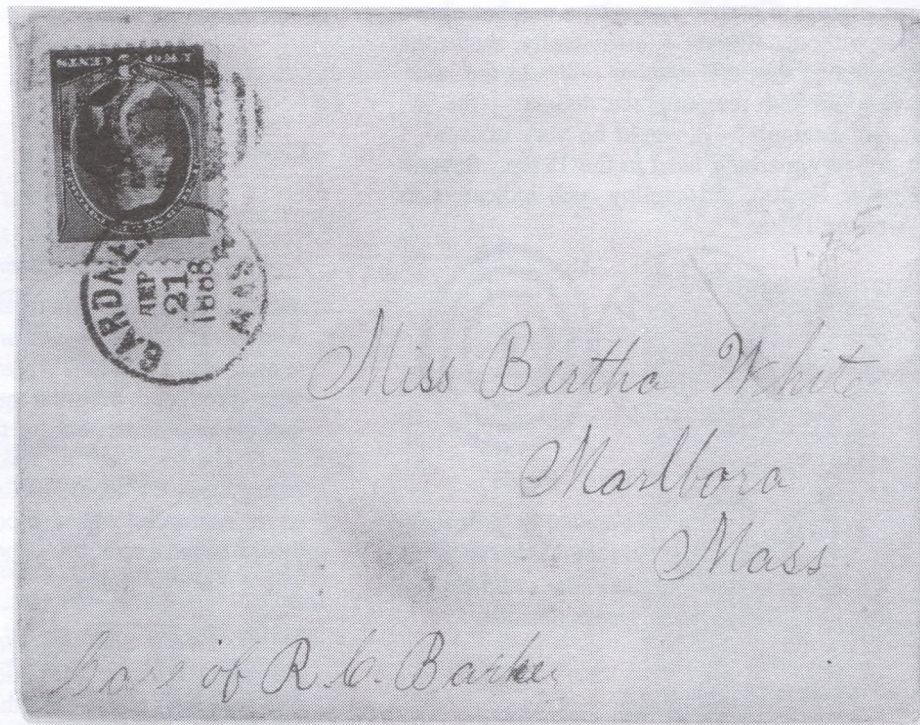 TWO CENTS
GARDNER
SEP
21
1888
MASS
1.25
Miss Bertha White
Marlboro
Mass
Care of R. C. Barker